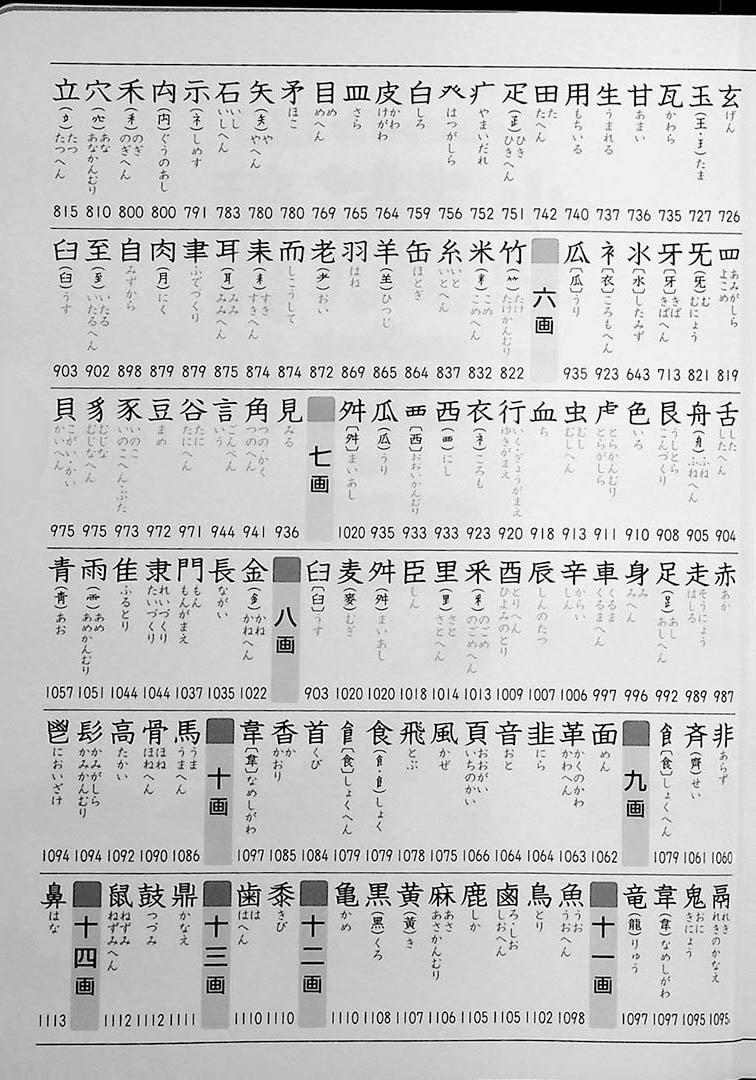 玄 げん 726
玉(王・𤣩)たま 727
瓦 かわら 735
甘 あまい 736
生 うまれる 737
用 もちいる 740
田 た たへん 742
疋(𤴔)ひき ひきへん 751
疒 やまいだれ 752
癶 はつがしら 756
白 しろ 759
皮 かわ けがわ 764
皿 さら 765
目 め めへん 769
矛 ほこ 780
矢(矢)や やへん 780
石 いし いしへん 783
示(礻)しめす 791
禸(禸)ぐうのあし 800
禾(禾)のぎ のぎへん 800
穴(穴)あな あなかんむり 810
立(立)たつ たつへん 815
罒 あみがしら よこめ 819
旡(旡)む むにょう 821
牙〔牙〕きば きばへん 713
氺〔水〕したみず 643
衤〔衣〕ころもへん 923
瓜〔瓜〕うり 935
六画
竹(⺮)たけ たけかんむり 822
米(米)こめ こめへん 832
糸 いと いとへん 837
缶 ほとぎ 864
羊(⺶)ひつじ 865
羽 はね 869
老(耂)おい 872
而 しこうして 874
耒(耒)すき すきへん 874
耳(耳)みみ みみへん 875
聿 ふでづくり 879
肉(月)にく 879
自 みずから 898
至(至)いたる いたるへん 902
臼(臼)うす 903
舌 した したへん 904
舟(舟)ふね ふねへん 905
艮 うしとら こんづくり 908
色 いろ 910
虍 とらかんむり とらがしら 911
虫 むし むしへん 913
血 ち 918
行 いく・ぎょうがまえ ゆきがまえ 920
衣(衤)ころも 923
西(覀)にし 933
覀〔西〕おおいかんむり 933
瓜(瓜)うり 935
舛〔舛〕まいあし 1020
七画
見 みる 936
角 つの・かく つのへん 941
言 ごんべん いう 944
谷 たに たにへん 971
豆 まめ 972
豕 いのこ いのこへん・ぶた 973
豸 むじな むじなへん 975
貝 こがい・かい かいへん 975
赤 あか 987
走 そうにょう はしる 989
足(𧾷)あし あしへん 992
身 み みへん 996
車 くるま くるまへん 997
辛 からい しん 1006
辰 しんのたつ 1007
酉 とりへん ひよみのとり 1009
釆(釆)のごめ のごめへん 1013
里(里)さと さとへん 1014
臣 しん 1018
舛(舛)まいあし 1020
麦(麥)むぎ 1020
臼〔臼〕うす 903
八画
金(釒)かね かねへん 1022
長 ながい 1035
門 もん もんがまえ 1037
隶 れいづくり たいづくり 1044
隹 ふるとり 1044
雨(⻗)あめ あめかんむり 1051
青(靑)あお 1057
非 あらず 1060
斉(齊)せい 1061
飠〔食〕しょくへん 1079
九画
面 めん 1062
革 かくのかわ かわへん 1063
韭 にら 1064
音 おと 1064
頁 おおがい いちのかい 1066
風 かぜ 1075
飛 とぶ 1078
食(飠・𩙿)しょく 1079
飠〔食〕しょくへん 1079
首 くび 1084
香 か かおり 1085
韋〔韋〕なめしがわ 1097
十画
馬 うま うまへん 1086
骨 ほね ほねへん 1090
高 たかい 1092
髟 かみがしら かみかんむり 1094
鬯 においざけ 1094
鬲 れき れきのかなえ 1095
鬼 おに きにょう 1095
韋(韋)なめしがわ 1097
竜(龍)りゅう 1097
十一画
魚 うお うおへん 1098
鳥 とり 1102
鹵 ろ・しお しおへん 1105
鹿 しか 1105
麻 あさ あさかんむり 1106
黄(黃)き 1107
黒(黑)くろ 1108
亀 かめ 1110
十二画
黍 きび 1110
歯 は はへん 1110
十三画
鼎 かなえ 1111
鼓 つづみ 1112
鼠 ねずみ ねずみへん 1112
十四画
鼻 はな 1113